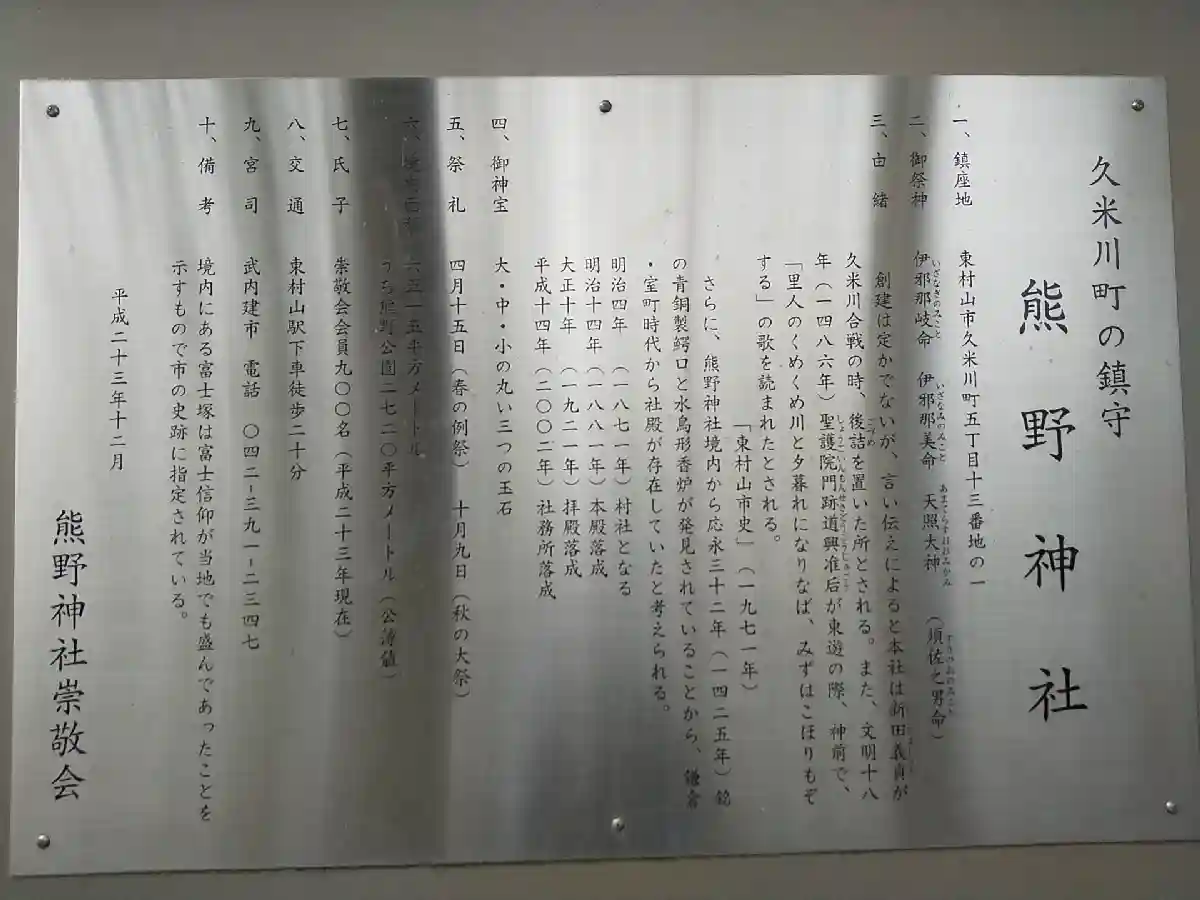 久米川町の鎮守
熊野神社
一、鎮座地 東村山市久米川町五丁目十三番地の一
二、御祭神 伊邪那岐命 伊邪那美命 天照大神 (須佐之男命)
三、由緒 創建は定かでないが、言い伝えによると本社は新田義貞が
久米川合戦の時、後詰を置いた所とされる。また、文明十八
年(一四八六年)聖護院門跡道興准后が東遊の際、神前で、
「里人のくめくめ川と夕暮れになりなば、みずはこほりもぞ
する」の歌を読まれたとされる。
「東村山市史」(一九七一年)
さらに、熊野神社境内から応永三十二年(一四二五年)銘
の青銅製鰐口と水鳥形香炉が発見されていることから、鎌倉
・室町時代から社殿が存在していたと考えられる。
明治四年(一八七一年)村社となる
明治十四年(一八八一年)本殿落成
大正十年(一九二一年)拝殿落成
平成十四年(二〇〇二年)社務所落成
四、御神宝 大・中・小の丸い三つの玉石
五、祭礼 四月十五日(春の例祭) 十月九日(秋の大祭)
六、境内面積 六五一五平方メートル
うち熊野公園二七二〇平方メートル(公簿値)
七、氏子 崇敬会会員九〇〇名(平成二十三年現在)
八、交通 東村山駅下車徒歩二十分
九、宮司 武内建市 電話 〇四二ー三九一ー二三四七
十、備考 境内にある富士塚は富士信仰が当地でも盛んであったことを
示すもので市の史跡に指定されている。
平成二十三年十二月
熊野神社崇敬会